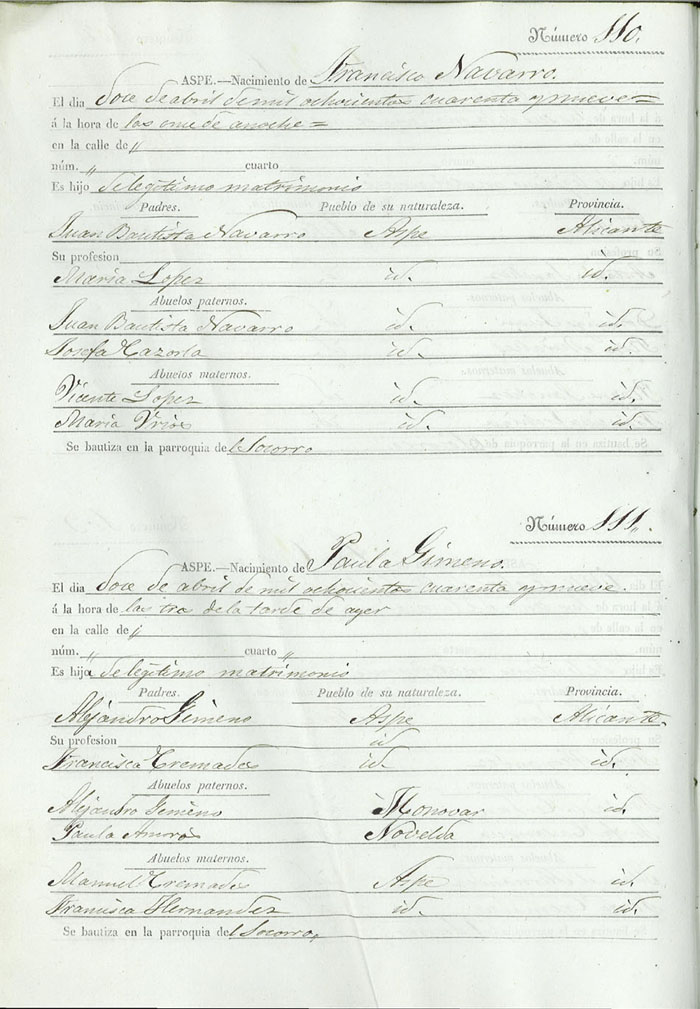 Número 110.
ASPE.—Nacimiento de Francisco Navarro.
El dia doce de abril de mil ochocientos cuarenta y nueve=
á la hora de las once de anoche=
en la calle de "
núm. " cuarto
Es hijo de legitimo matrimonio
Padres. Pueblo de su naturaleza. Provincia.
Juan Bautista Navarro Aspe Alicante
Su profesion
Maria Lopez id. id.
Abuelos paternos.
Juan Bautista Navarro id. id.
Josefa Cazorla id. id.
Abuelos maternos.
Vicente Lopez id. id.
Maria Urios id. id.
Se bautiza en la parroquia del Socorro
Número 111.
ASPE.—Nacimiento de Paula Gimeno.
El dia doce de abril de mil ochocientos cuarenta y nueve.
á la hora de las tres de la tarde de ayer
en la calle de "
núm. " cuarto "
Es hija de legitimo matrimonio
Padres. Pueblo de su naturaleza. Provincia.
Alejandro Gimeno Aspe Alicante.
Su profesion id
Francisca Cremades id. id.
Abuelos paternos.
Alejandro Gimeno Monovar id.
Paula Amoros Novelda
Abuelos maternos.
Manuel Cremades Aspe id.
Francisca Hernandez id. id.
Se bautiza en la parroquia del Socorro,